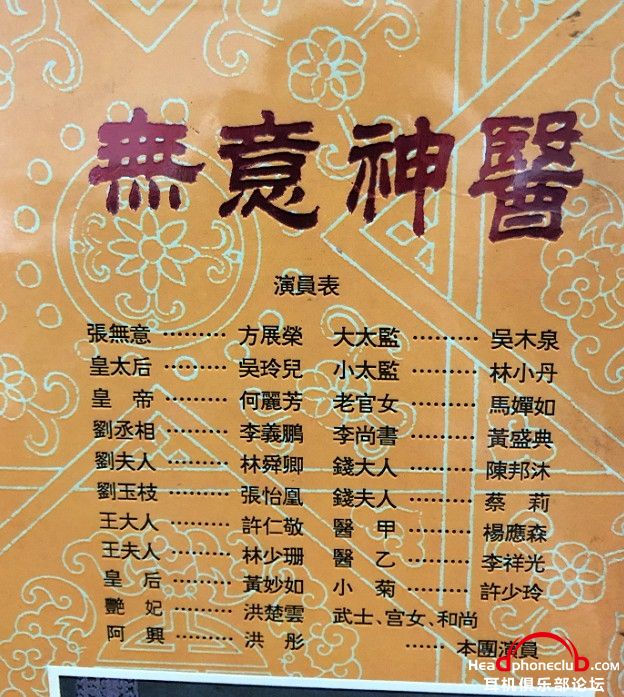 無意神醫
演員表
張無意 ⋯⋯⋯ 方展榮
皇太后 ⋯⋯⋯ 吳玲兒
皇 帝 ⋯⋯⋯ 何麗芳
劉丞相 ⋯⋯⋯ 李義鵬
劉夫人 ⋯⋯⋯ 林舜卿
劉玉枝 ⋯⋯⋯ 張怡凰
王大人 ⋯⋯⋯ 許仁敬
王夫人 ⋯⋯⋯ 林少珊
皇 后 ⋯⋯⋯ 黃妙如
艷 妃 ⋯⋯⋯ 洪楚雲
阿 興 ⋯⋯⋯ 洪 彤
大太監 ⋯⋯⋯ 吳木泉
小太監 ⋯⋯⋯ 林小丹
老官女 ⋯⋯⋯ 馬嬋如
李尚書 ⋯⋯⋯ 黃盛典
錢大人 ⋯⋯⋯ 陳邦沐
錢夫人 ⋯⋯⋯ 蔡 莉
醫 甲 ⋯⋯⋯ 楊應森
醫 乙 ⋯⋯⋯ 李祥光
小 菊 ⋯⋯⋯ 許少玲
武士、宮女、和尚
⋯⋯ 本團演員
Headphoneclub.com
耳机俱乐部论坛